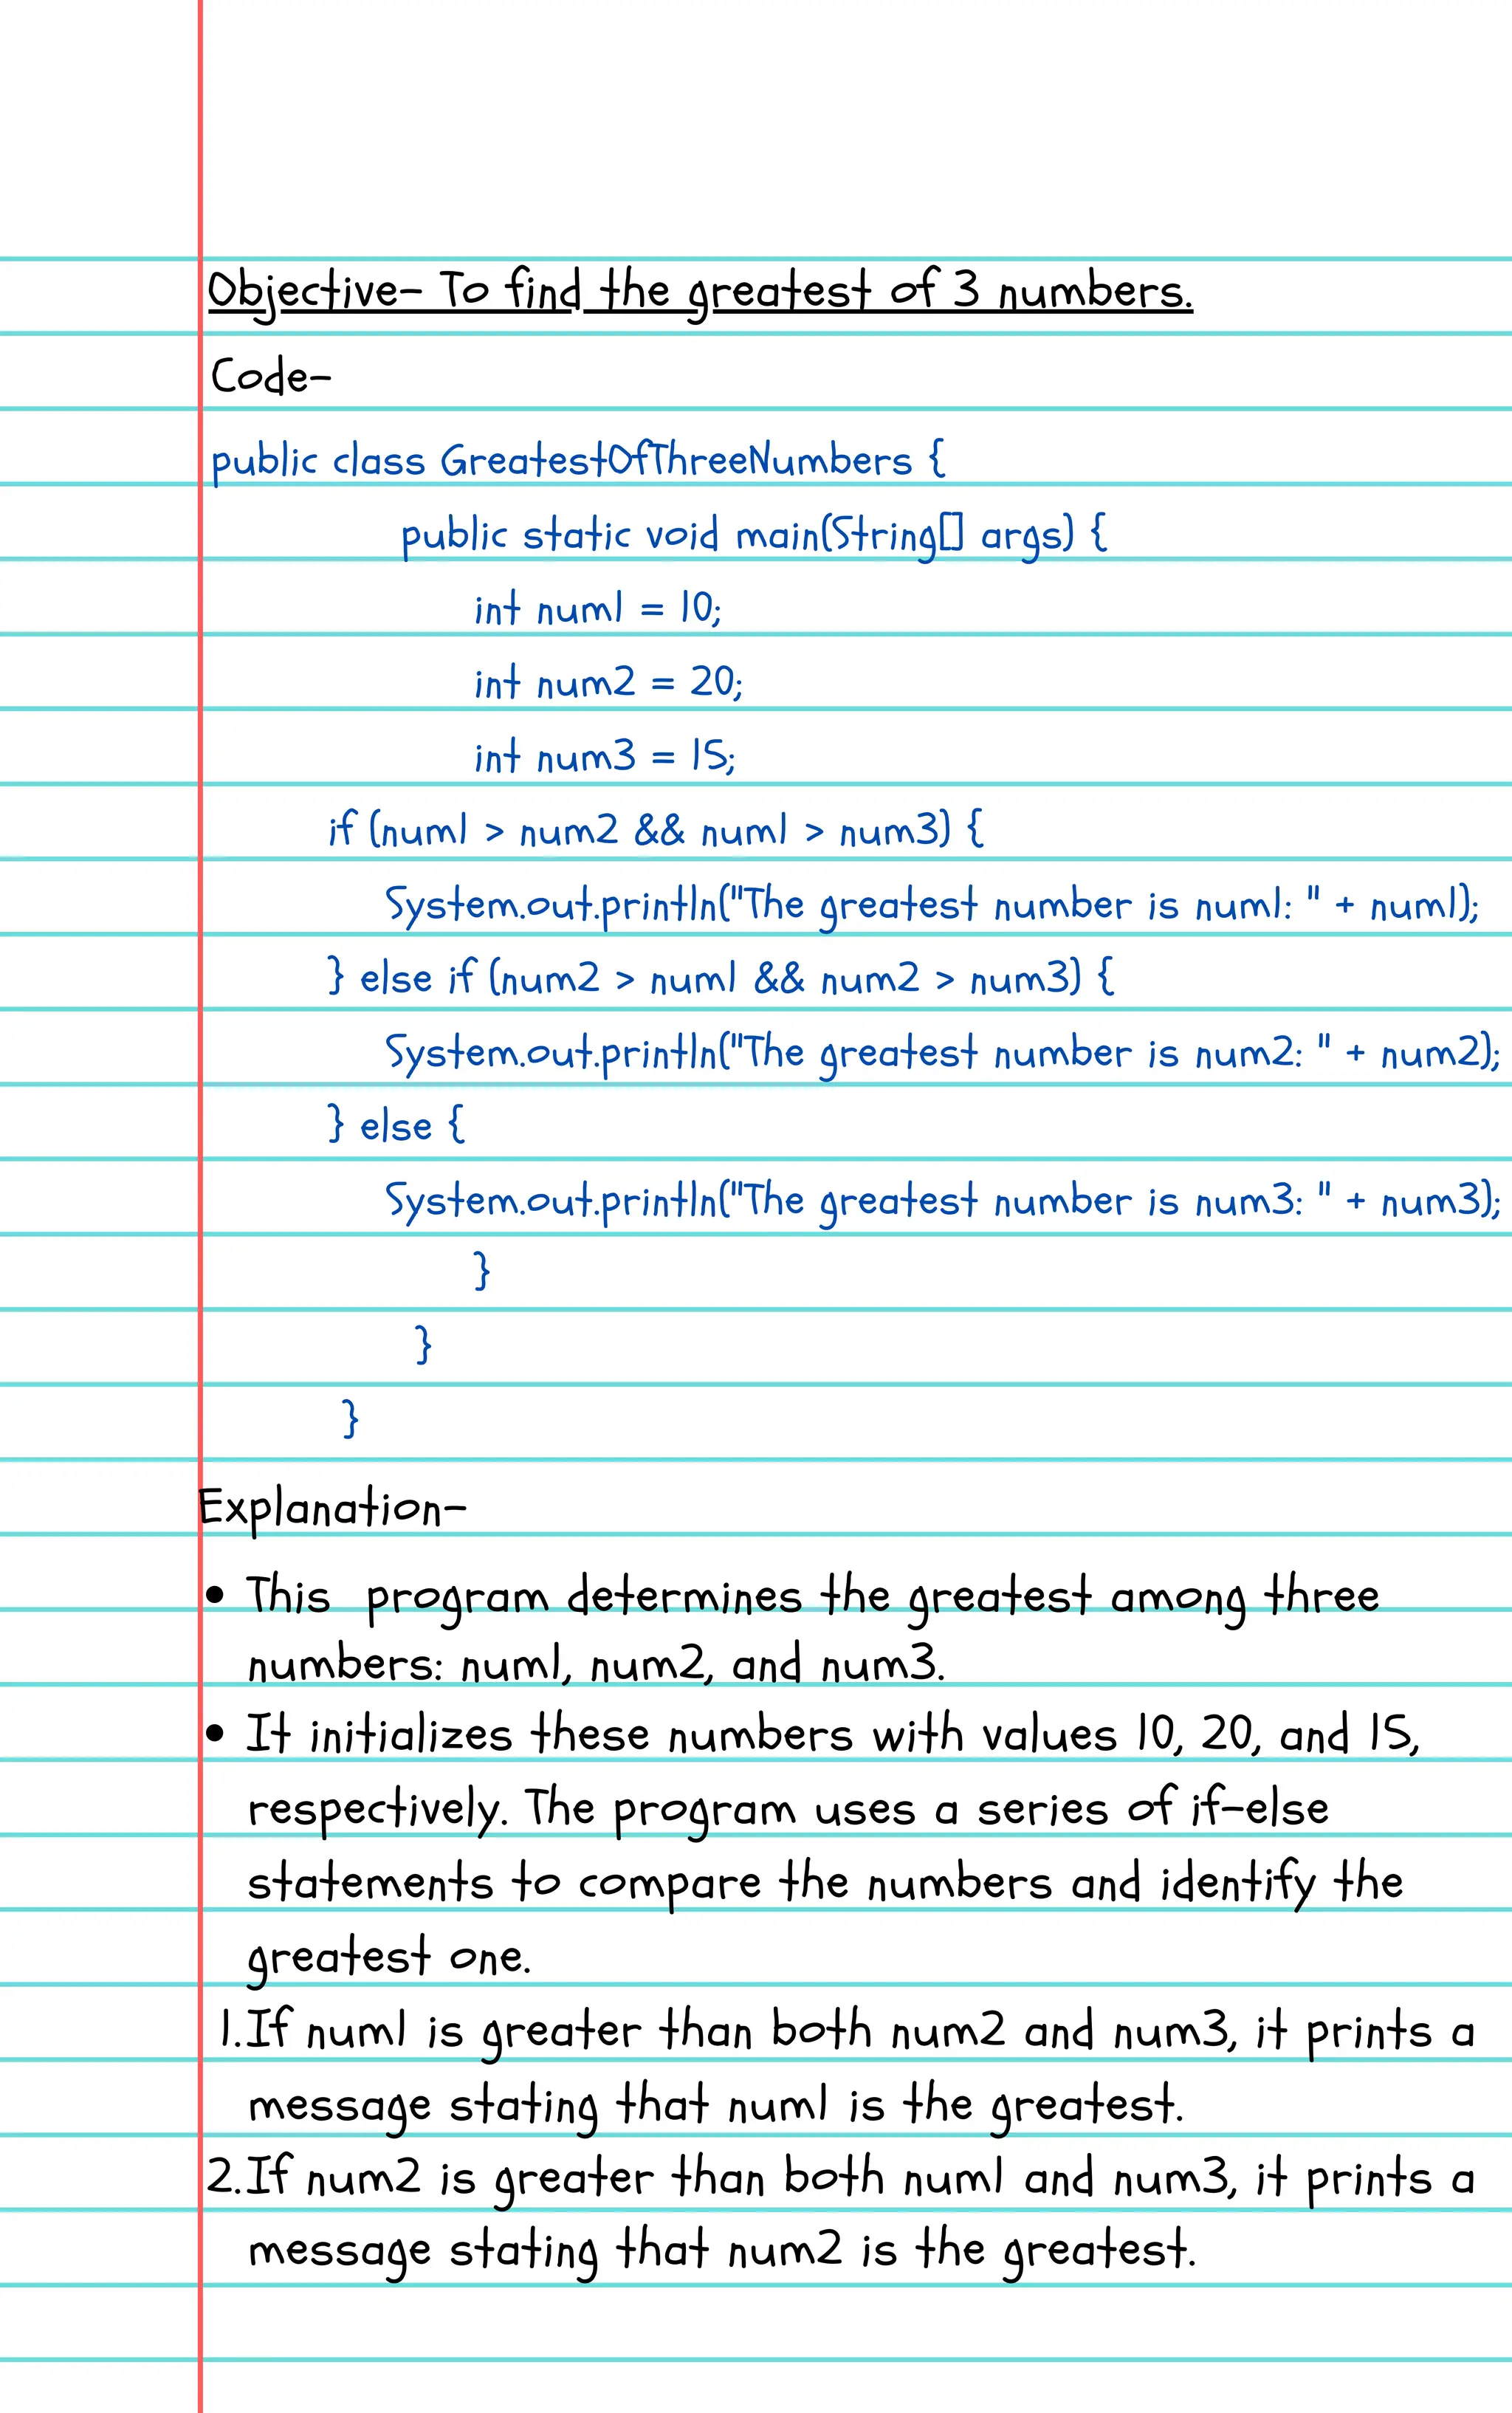 Objective- To find the greatest of 3 numbers.
Code-
public class GreatestOfThreeNumbers {
public static void main(String[] args) {
int num1 = 10;
int num2 = 20;
int num3 = 15;
if (num1 > num2 && num1 > num3) {
System.out.println("The greatest number is num1: " + num1);
} else if (num2 > num1 && num2 > num3) {
System.out.println("The greatest number is num2: " + num2);
} else {
System.out.println("The greatest number is num3: " + num3);
}
}
}
Explanation-
• This program determines the greatest among three
numbers: num1, num2, and num3.
• It initializes these numbers with values 10, 20, and 15,
respectively. The program uses a series of if-else
statements to compare the numbers and identify the
greatest one.
1.If num1 is greater than both num2 and num3, it prints a
message stating that num1 is the greatest.
2.If num2 is greater than both num1 and num3, it prints a
message stating that num2 is the greatest.